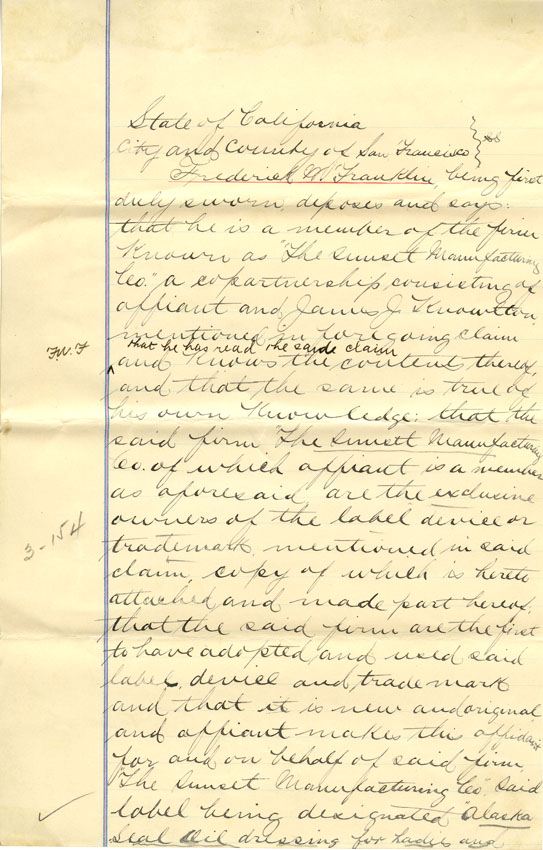 State of California
City and County of San Francisco } ss
Frederick W Franklin, being first
duly sworn, deposes and says:
that he is a member of the firm
Known as "The Sunset Manufacturing
Co." a copartnership consisting of
affiant and James J. Knowlton,
mentioned in foregoing claim
F.W.F that he has read the said claim
and Knows the contents thereof,
and that the same is true of
his own Knowledge: that the
said firm "The Sunset Manufacturing
Co. of which affiant is a member
as aforesaid, are the exclusive
owners of the label device or
trademark, mentioned in said
claim, copy of which is hereto
3-154
attached and made part hereof;
that the said firm are the first
to have adopted and used said
label, device and trademark
and that it is new and original
and affiant makes this affidavit
for and on behalf of said firm
"The Sunset Manufacturing Co." said
label being designated "Alaska
Seal Oil dressing for Ladies and